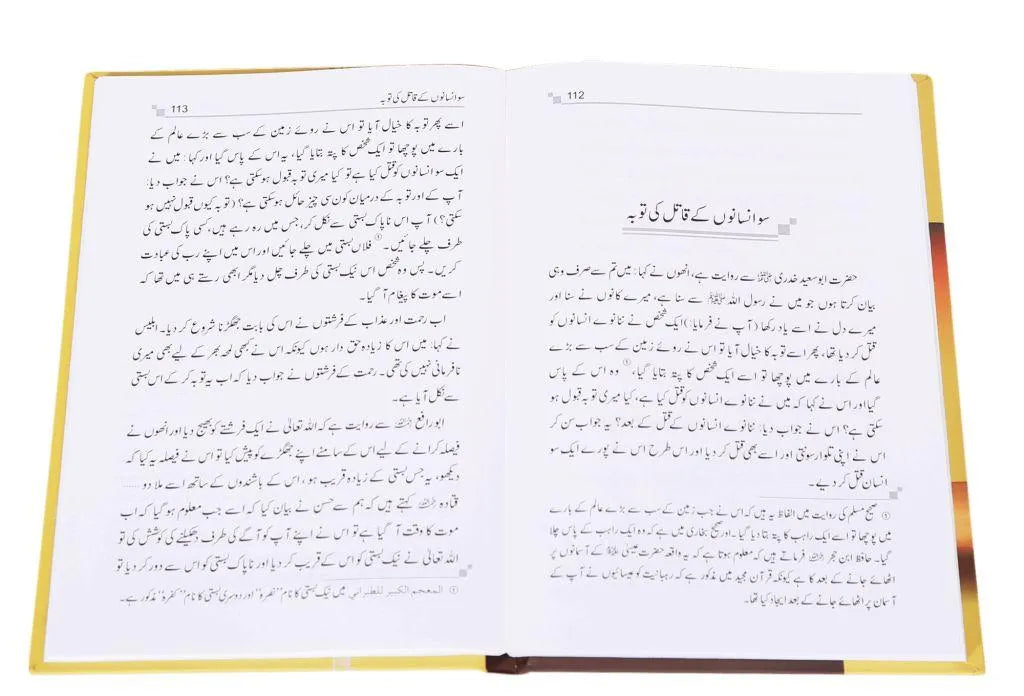 112
سو انسانوں کے قاتل کی توبہ
حضرت ابوسعید خدری ﷜ سے روایت ہے، انھوں نے کہا: میں تم سے صرف وہی
بیان کرتا ہوں جو میں نے رسول اللہ ﷺ سے سنا ہے، میرے کانوں نے سنا اور
میرے دل نے اسے یاد رکھا (آپ نے فرمایا:) ایک شخص نے ننانوے انسانوں کو
قتل کر دیا تھا، پھر اسے توبہ کا خیال آیا تو اس نے روئے زمین کے سب سے بڑے
عالم کے بارے میں پوچھا تو اسے ایک شخص کا پتہ بتایا گیا،① وہ اس کے پاس
گیا اور اس نے کہا کہ میں نے ننانوے انسانوں کو قتل کیا ہے، کیا میری توبہ قبول ہو
سکتی ہے؟ اس نے جواب دیا: ننانوے انسانوں کے قتل کے بعد؟ یہ جواب سن کر
اس نے اپنی تلوار سونتی اور اسے بھی قتل کر دیا اور اس طرح اس نے پورے ایک سو
انسان قتل کر دیے۔
① صحیح مسلم کی روایت میں الفاظ یہ ہیں کہ اس نے جب زمین کے سب سے بڑے عالم کے بارے
میں پوچھا تو اسے ایک راہب کا پتہ بتا دیا گیا۔ اور صحیح بخاری میں ہے کہ وہ ایک راہب کے پاس چلا
گیا۔ حافظ ابن حجر رحمہ اللہ فرماتے ہیں کہ معلوم ہوتا ہے کہ یہ واقعہ حضرت عیسیٰ علیہ السلام کے آسمانوں پر
اٹھائے جانے کے بعد کا ہے کیونکہ قرآن مجید میں مذکور ہے کہ رہبانیت کو عیسائیوں نے آپ کے
آسمان پر اٹھائے جانے کے بعد ایجاد کیا تھا۔
سو انسانوں کے قاتل کی توبہ
113
اسے پھر توبہ کا خیال آیا تو اس نے روئے زمین کے سب سے بڑے عالم کے
بارے میں پوچھا تو ایک شخص کا پتہ بتایا گیا، یہ اس کے پاس گیا اور کہا: میں نے
ایک سو انسانوں کو قتل کیا ہے تو کیا میری توبہ قبول ہو سکتی ہے؟ اس نے جواب دیا:
آپ کے اور توبہ کے درمیان کون سی چیز حائل ہو سکتی ہے؟ (توبہ کیوں قبول نہیں ہو
سکتی؟) آپ اس ناپاک بستی سے نکل کر، جس میں رہ رہے ہیں، کسی پاک بستی کی
طرف چلے جائیں۔① فلاں بستی میں چلے جائیں اور اس میں اپنے رب کی عبادت
کریں۔ پس وہ شخص اس نیک بستی کی طرف چل دیا مگر ابھی رستے ہی میں تھا کہ
اسے موت کا پیغام آ گیا۔
اب رحمت اور عذاب کے فرشتوں نے اس کی بابت جھگڑنا شروع کر دیا۔ ابلیس
نے کہا: میں اس کا زیادہ حق دار ہوں کیونکہ اس نے کبھی لمحہ بھر کے لیے بھی میری
نافرمانی نہیں کی تھی۔ رحمت کے فرشتوں نے جواب دیا کہ اب یہ توبہ کر کے اس بستی
سے نکل آیا ہے۔
ابو رافع رحمہ اللہ سے روایت ہے کہ اللہ تعالیٰ نے ایک فرشتے کو بھیج دیا اور انھوں نے
فیصلہ کرانے کے لیے اس کے سامنے اپنے جھگڑے کو پیش کیا تو اس نے فیصلہ یہ کیا کہ
دیکھو، یہ جس بستی کے زیادہ قریب ہو، اس کے باشندوں کے ساتھ اسے ملا دو ......
قتادہ رحمہ اللہ کہتے ہیں کہ ہم سے حسن نے بیان کیا کہ اسے جب معلوم ہو گیا کہ اب
موت کا وقت آ گیا ہے تو اس نے اپنے آپ کو آگے کی طرف دھکیلنے کی کوشش کی تو
اللہ تعالیٰ نے نیک بستی کو اس کے قریب کر دیا اور ناپاک بستی کو اس سے دور کر دیا تو
① المعجم الكبير للطبراني میں نیک بستی کا نام "نصرۃ" اور دوسری بستی کا نام "کفرۃ" مذکور ہے۔